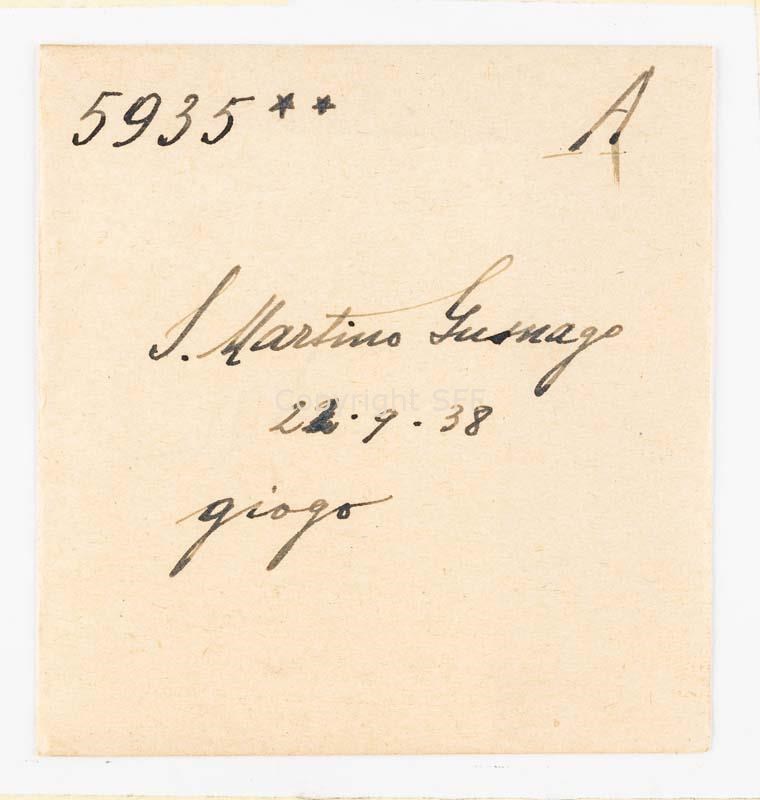 5935** A
S. Martino Gusnago
22.9.38
giogo
Copyright SFF